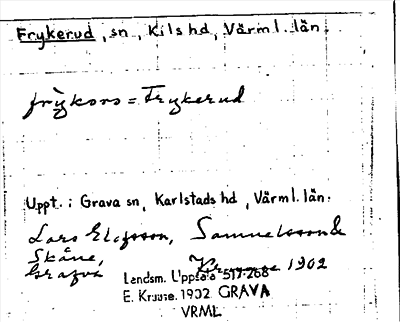 Frykerud, sn, Kils hd, Värml. län.
frykors = Frykerud
Uppt. i Grava sn, Karlstads hd, Värml. län.
Lars Olofsson, Samuelsson &
Skåne, Kruuse 1902
Grafva Landsm. Uppsala 517:268
E. Kruuse. 1902 GRAVA
VRML